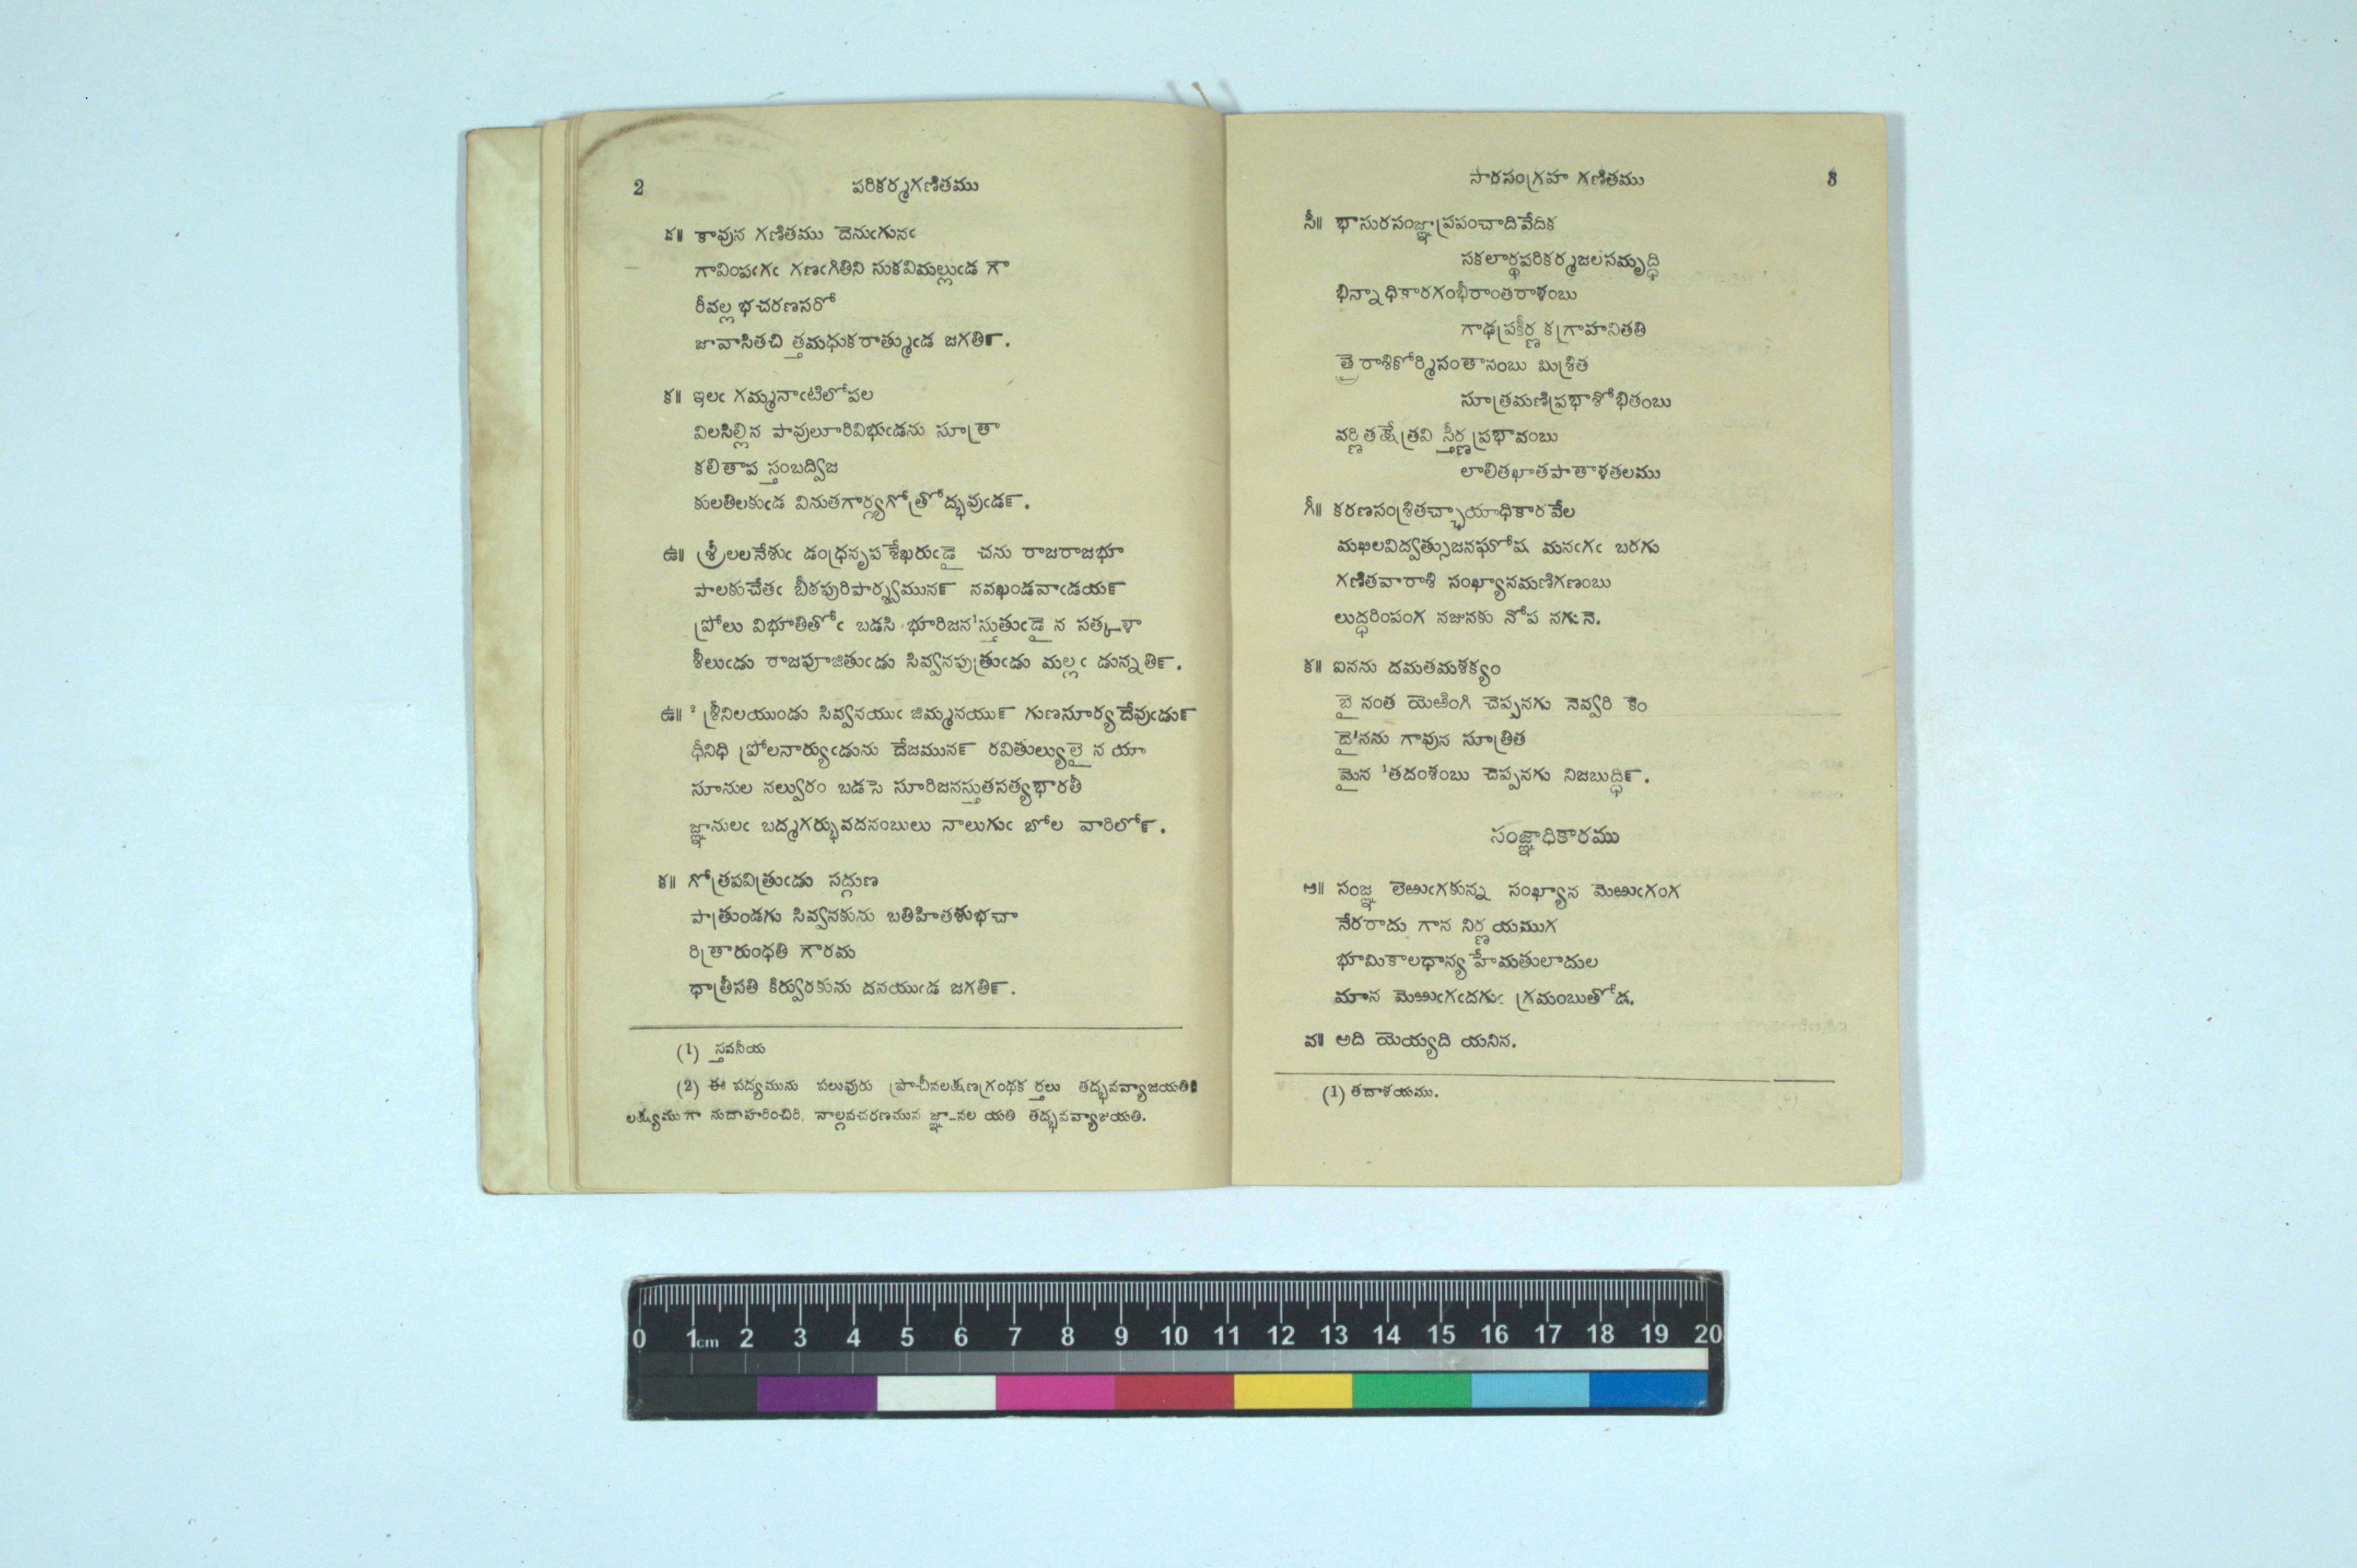 2 పరికర్మగణితము
క॥ కావున గణితము దెనుఁగునఁ
గావింపఁగఁ గణఁగితిని సుకవిమల్లుఁడ గౌ
రీవల్లభచరణసరో
జావాసితచిత్తమధుకరాత్ముఁడ జగతి౯.
క॥ ఇలఁ గమ్మనాఁటిలోపల
విలసిల్లిన పావులూరివిభుఁడను సూత్రా
కలితాపస్తంబద్విజ
కులతిలకుఁడ వినుతగార్గ్యగోత్రోద్భవుఁడ౯.
ఉ॥ శ్రీలలనేశుఁ డంధ్రనృపశేఖరుఁడై చను రాజరాజభూ
పాలకుచేతఁ బీఠపురిపార్శ్వమున౯ నవఖండవాఁడయ౯
ప్రోలు విభూతితోఁ బడసి భూరిజన¹స్తుతుఁడైన సత్కళా
శీలుఁడు రాజపూజితుఁడు సివ్వనపుత్రుఁడు మల్లఁ డున్నతి౯.
ఉ॥ ²శ్రీనిలయుండు సివ్వనయుఁ జిమ్మనయు౯ గుణసూర్యదేవుఁడు౯
ధీనిధి ప్రోలనార్యుఁడును దేజమున౯ రవితుల్యులైన యా
సూనుల నల్వురం బడసె సూరిజనస్తుతసత్యభారతీ
జ్ఞానులఁ బద్మగర్భువదనంబులు నాలుగుఁ బోల వారిలో౯.
క॥ గోత్రపవిత్రుఁడు సద్గుణ
పాత్రుండగు సివ్వనకును బతిహితశుభచా
రిత్రారుంధతి గౌరమ
ధాత్రీసతి కిర్వురకును దనయుఁడ జగతి౯.
(1) స్తవనీయ
(2) ఈ పద్యమును పలువురు ప్రాచీనలక్షణగ్రంథకర్తలు తద్భవవ్యాజయతికి
లక్ష్యముగా నుదాహరించిరి. నాల్గవచరణమున జ్ఞా-నల యతి తద్భవవ్యాజయతి.
సారసంగ్రహ గణితము 3
సీ॥ భాసురసంజ్ఞాప్రపంచాదివేదిక
సకలార్థపరికర్మజలసమృద్ధి
భిన్నాధికారగంభీరాంతరాళంబు
గాఢప్రకీర్ణకగ్రాహనితతి
త్రైరాశికోర్మిసంతానంబు మిశ్రిత
సూత్రమణిప్రభాశోభితంబు
వర్ణితక్షేత్రవిస్తీర్ణప్రభావంబు
లాలితఖాతపాతాళతలము
గీ॥ కరణసంశ్రితచ్ఛాయాధికారవేల
మఖిలవిద్వత్సుజనఘోష మనఁగఁ బరగు
గణితవారాశి సంఖ్యానమణిగణంబు
లుద్ధరింపంగ నజునకు నోప నగునె.
క॥ ఐనను దమతమశక్యం
బైనంత యెఱింగి చెప్పనగు నెవ్వరి కెం
దై'నను గావున సూత్రిత
మైన ¹తదంశంబు చెప్పనగు నిజబుద్ధి౯.
సంజ్ఞాధికారము
ఆ॥ సంజ్ఞ లెఱుఁగకున్న సంఖ్యాన మెఱుఁగంగ
నేరరాదు గాన నిర్ణయముగ
భూమికాలధాన్యహేమతులాదుల
మాన మెఱుఁగఁదగుఁ గ్రమంబుతోడ.
వ॥ అది యెయ్యది యనిన.
(1) తదాశయము.
0 1cm 2 3 4 5 6 7 8 9 10 11 12 13 14 15 16 17 18 19 20